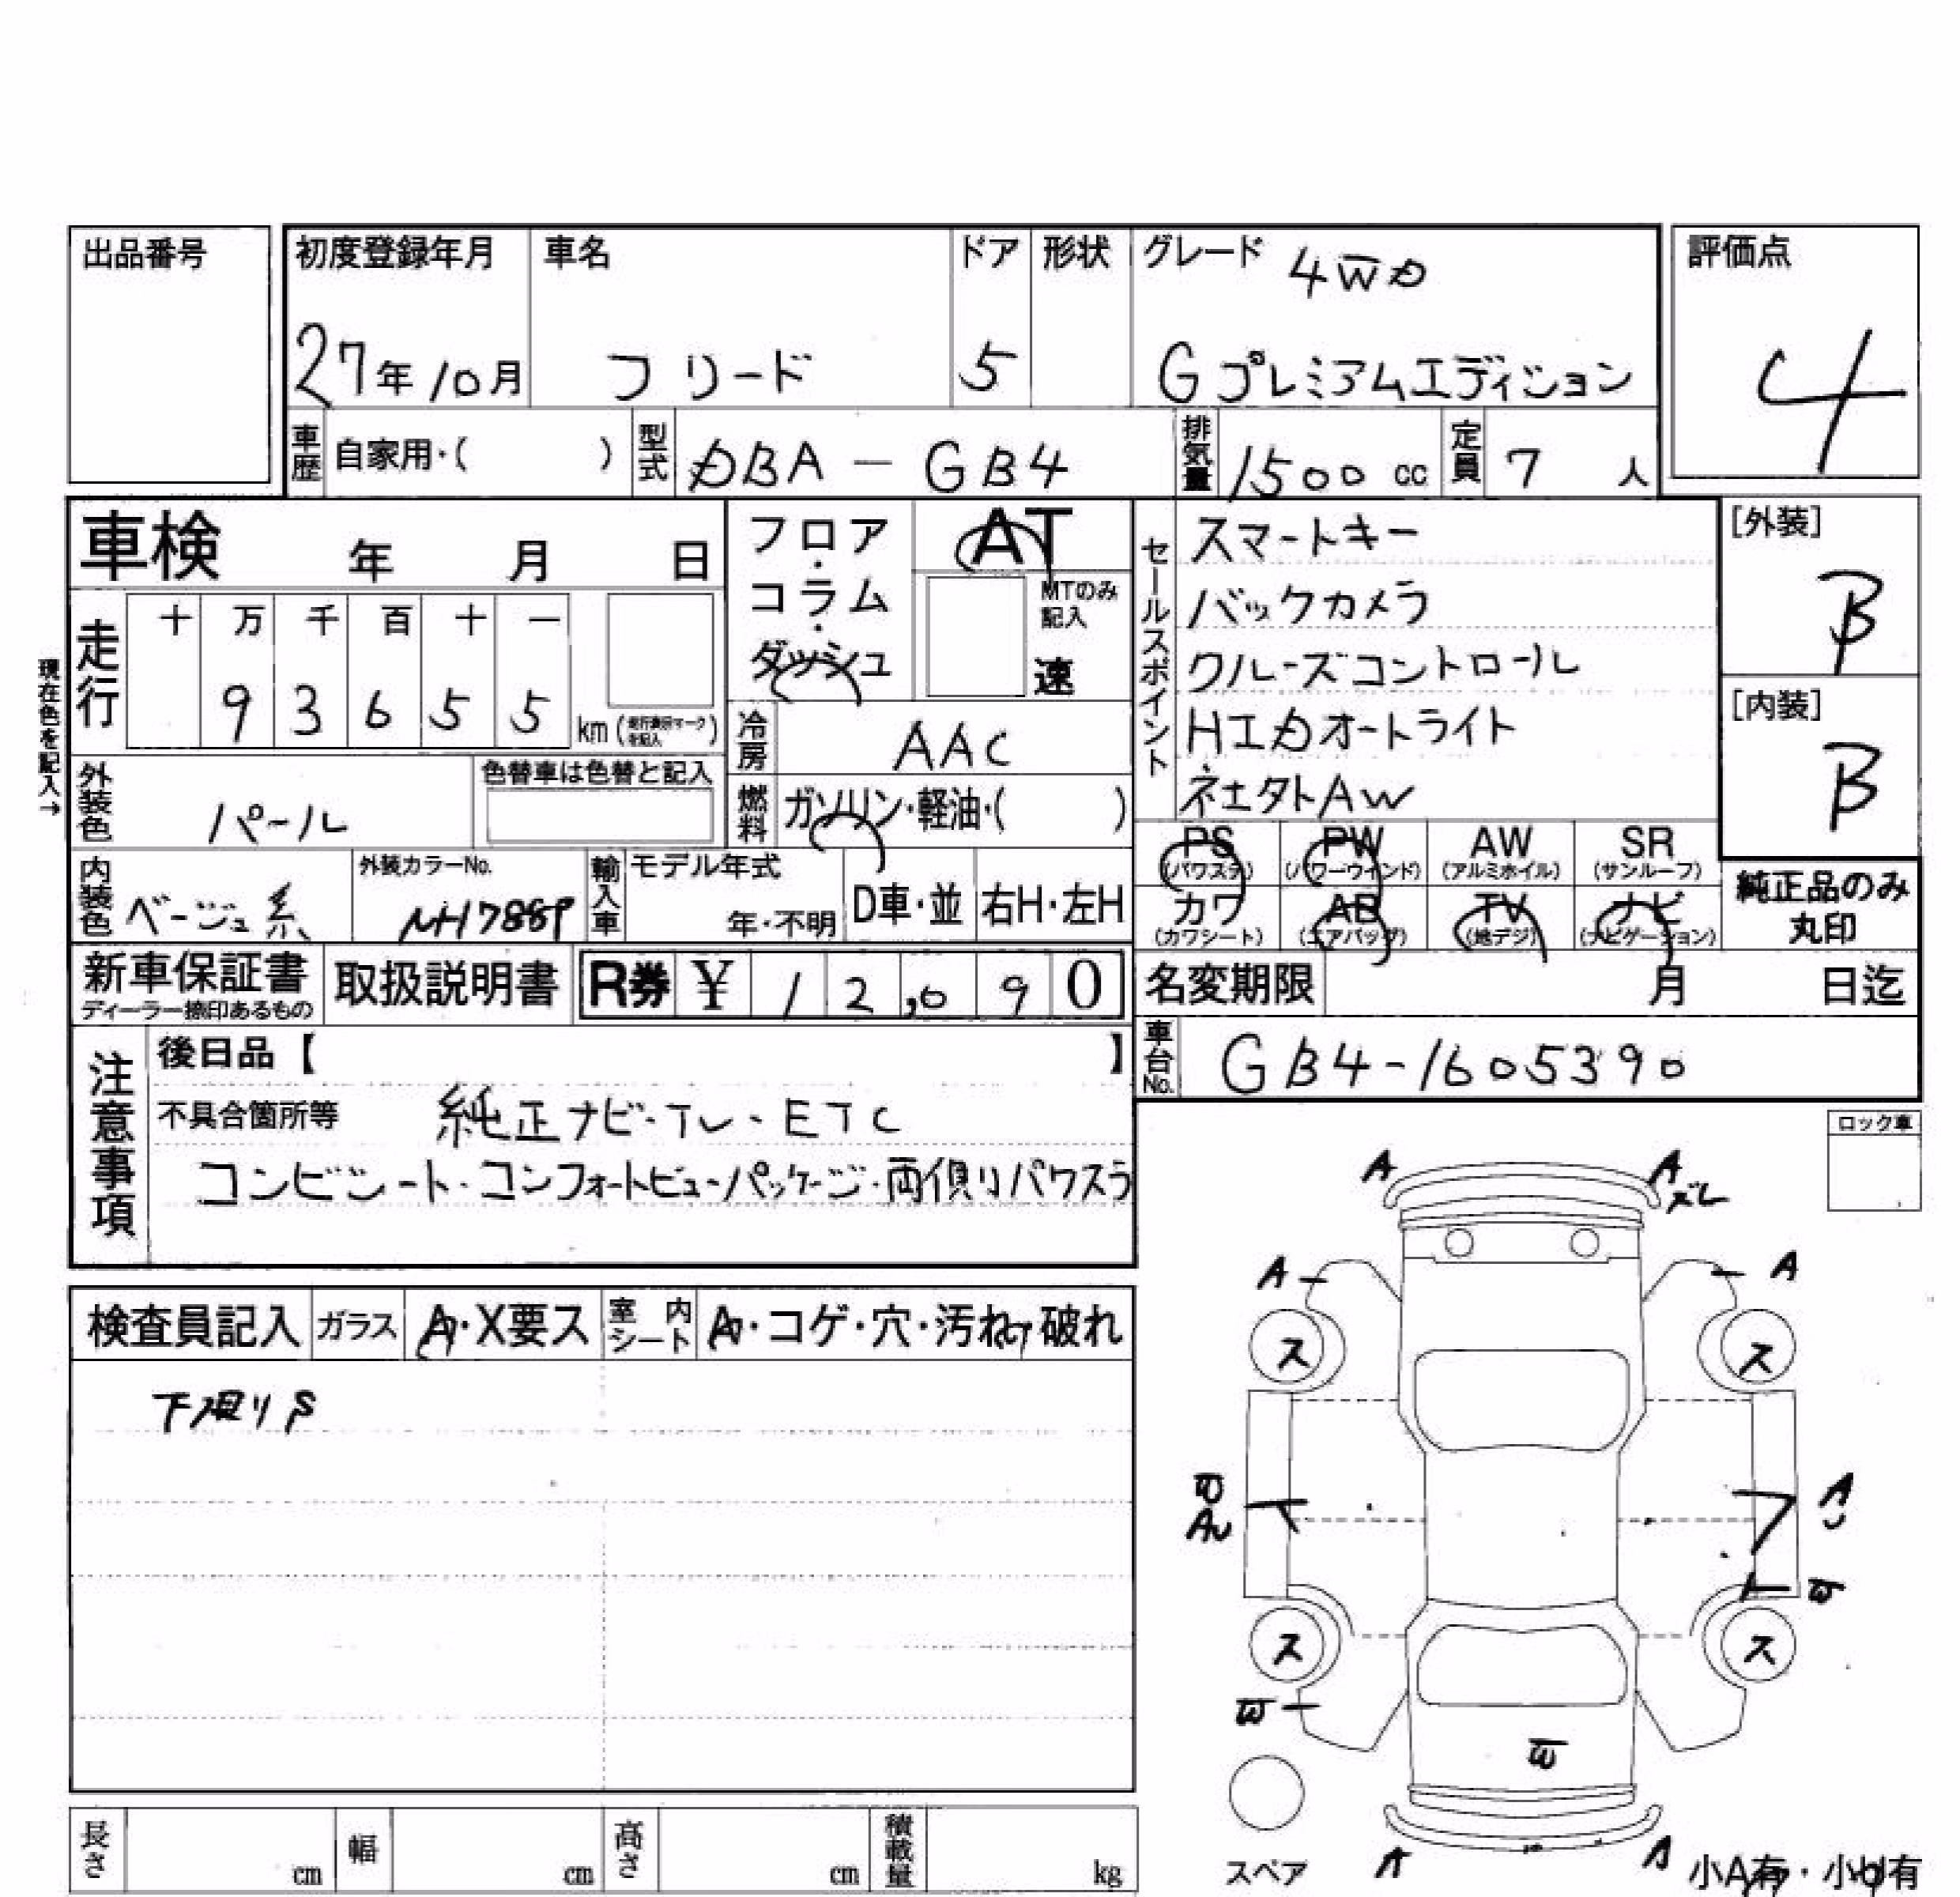 出品番号
初度登録年月 車名 ドア 形状 グレード 4WD 評価点
27年10月 フリード 5 Gプレミアムエディション 4
車歴 自家用・( ) 型式 DBA-GB4 排気量 1500 cc 定員 7 人
車検 年 月 日
フロア・コラム・ダッシュ AT
MTのみ記入 速
セールスポイント
スマートキー
バックカメラ
クルーズコントロール
HIDオートライト
AW
[外装] B
[内装] B
現在色を記入→
走行 十 万 千 百 十 一
9 3 6 5 5 km (走行表示マークを記入)
冷房 AAC
外装色 パール 色替車は色替と記入
燃料 ガソリン・軽油・( )
PS (パワステ) PW (パワーウインド) AW (アルミホイル) SR (サンルーフ)
カワ (カワシート) AB (エアバッグ) TV (地デジ) ナビ (ナビゲーション)
純正品のみ丸印
内装色 ベージュ系 外装カラーNo. NH788P 輸入車 モデル年式 年・不明 D車・並 右H・左H
新車保証書 ディーラー捺印あるもの 取扱説明書 R券 ¥ 1 2,0 9 0
名変期限 月 日迄
車台No. GB4-1605390
注意事項
後日品【 】
不具合箇所等 純正ナビ・TV・ETC
コンビシート・コンフォートビューパッケージ・両側リパワスラ
ロック車
A A ズレ
A A
ス ス
W AU A U
W
ス ス
W
W
A A
スペア 小A有・小U有
検査員記入 ガラス A・X要ス 室内シート A・コゲ・穴・汚れ・破れ
下廻りS
長さ cm 幅 cm 高さ cm 積載量 kg